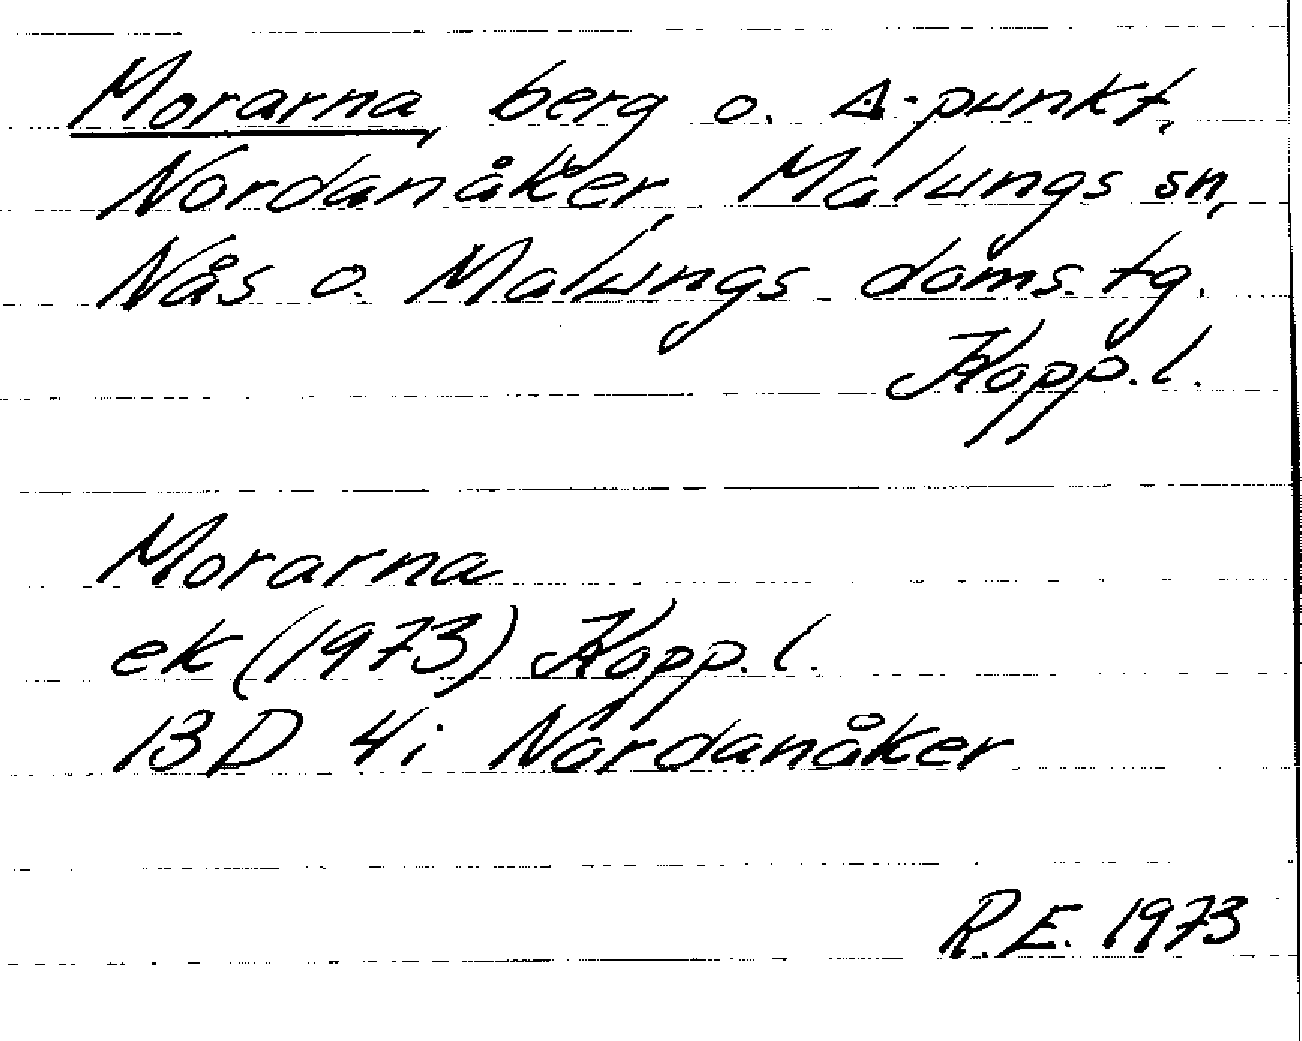 Morarna, berg o. ∆-punkt,
Nordanåker, Malungs sn,
Nås o. Malungs doms. tg.
Kopp.l.
Morarna
ek (1973) Kopp.l.
13D 4i Nordanåker
R.E. 1973